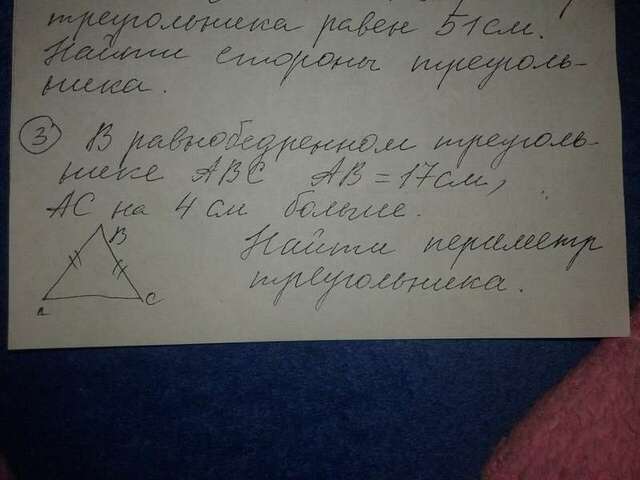 треугольника равен 51 см.
Найти стороны треуголь-
ника.
3 В равнобедренном треуголь-
нике АВС АВ = 17 см,
АС на 4 см больше.
Найти периметр
треугольника.
В
а
С